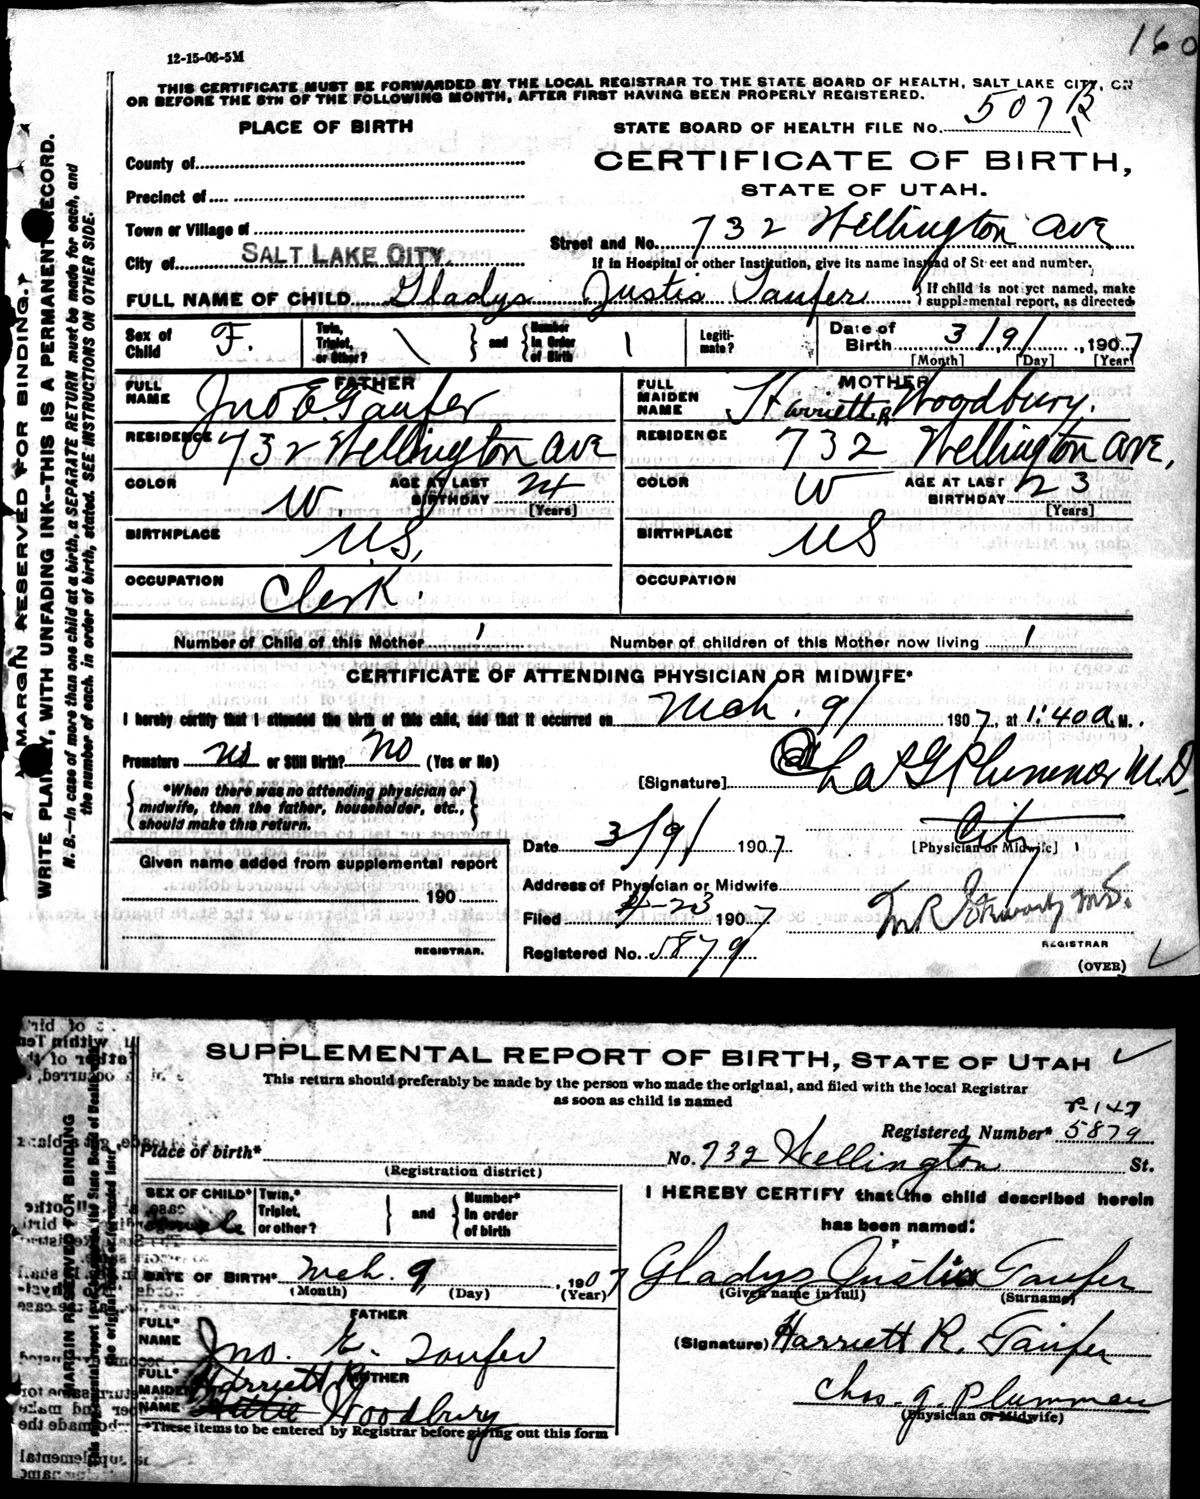 160
12-15-06-5M
THIS CERTIFICATE MUST BE FORWARDED BY THE LOCAL REGISTRAR TO THE STATE BOARD OF HEALTH, SALT LAKE CITY, ON
OR BEFORE THE 5TH OF THE FOLLOWING MONTH, AFTER FIRST HAVING BEEN PROPERLY REGISTERED.
MARGIN RESERVED FOR BINDING.
WRITE PLAINLY, WITH UNFADING INK—THIS IS A PERMANENT RECORD.
N. B.—In case of more than one child at a birth, a SEPARATE RETURN must be made for each, and
the number of each, in order of birth, stated. SEE INSTRUCTIONS ON OTHER SIDE.
PLACE OF BIRTH
County of
Precinct of
Town or Village of
City of SALT LAKE CITY.
STATE BOARD OF HEALTH FILE No. 507 B
CERTIFICATE OF BIRTH,
STATE OF UTAH.
Street and No. 732 Wellington Ave
If in Hospital or other Institution, give its name instead of Street and number.
FULL NAME OF CHILD Gladys Justis Taufer
If child is not yet named, make
supplemental report, as directed
Sex of Child F.
Twin, Triplet, or Other? \ and Number in Order of Birth 1
Legitimate?
Date of Birth 3/9/, 1907
[Month] [Day] [Year]
FATHER
FULL NAME Jno E. Taufer
RESIDENCE 732 Wellington Ave
COLOR W. AGE AT LAST BIRTHDAY 24
[Years]
BIRTHPLACE US,
OCCUPATION Clerk.
MOTHER
FULL MAIDEN NAME Harriett R Woodbury.
RESIDENCE 732 Wellington Ave,
COLOR W AGE AT LAST BIRTHDAY 23
[Years]
BIRTHPLACE US
OCCUPATION
Number of Child of this Mother 1 Number of children of this Mother now living 1
CERTIFICATE OF ATTENDING PHYSICIAN OR MIDWIFE*
I hereby certify that I attended the birth of this child, and that it occurred on Mch. 9/ 1907, at 1:40 a.M.
Premature no or Still Birth? No (Yes or No)
*When there was no attending physician or
midwife, then the father, householder, etc.,
should make this return.
[Signature] Chas G Plummer M.D.
[Physician or Midwife]
Date 3/9/ 1907
Address of Physician or Midwife City
Filed 4-23 1907
REGISTRAR
Registered No. 5879
(OVER)
Given name added from supplemental report
190
REGISTRAR.
SUPPLEMENTAL REPORT OF BIRTH, STATE OF UTAH
This return should preferably be made by the person who made the original, and filed with the local Registrar
as soon as child is named
MARGIN RESERVED FOR BINDING
Registered Number* 5879
Place of birth* No. 732 Wellington St.
(Registration district)
SEX OF CHILD* Female
Twin,* Triplet, or other? and Number* in order of birth
DATE OF BIRTH* Mch. 9, 1907
(Month) (Day) (Year)
FATHER
FULL* NAME Jno. E. Taufer
MOTHER
FULL* MAIDEN NAME Harriett R Woodbury
*These items to be entered by Registrar before giving out this form
I HEREBY CERTIFY that the child described herein
has been named:
Gladys Justis Taufer
(Given name in full) (Surname)
(Signature) Harriett R. Taufer
Chas. G. Plummer
(Physician or Midwife)